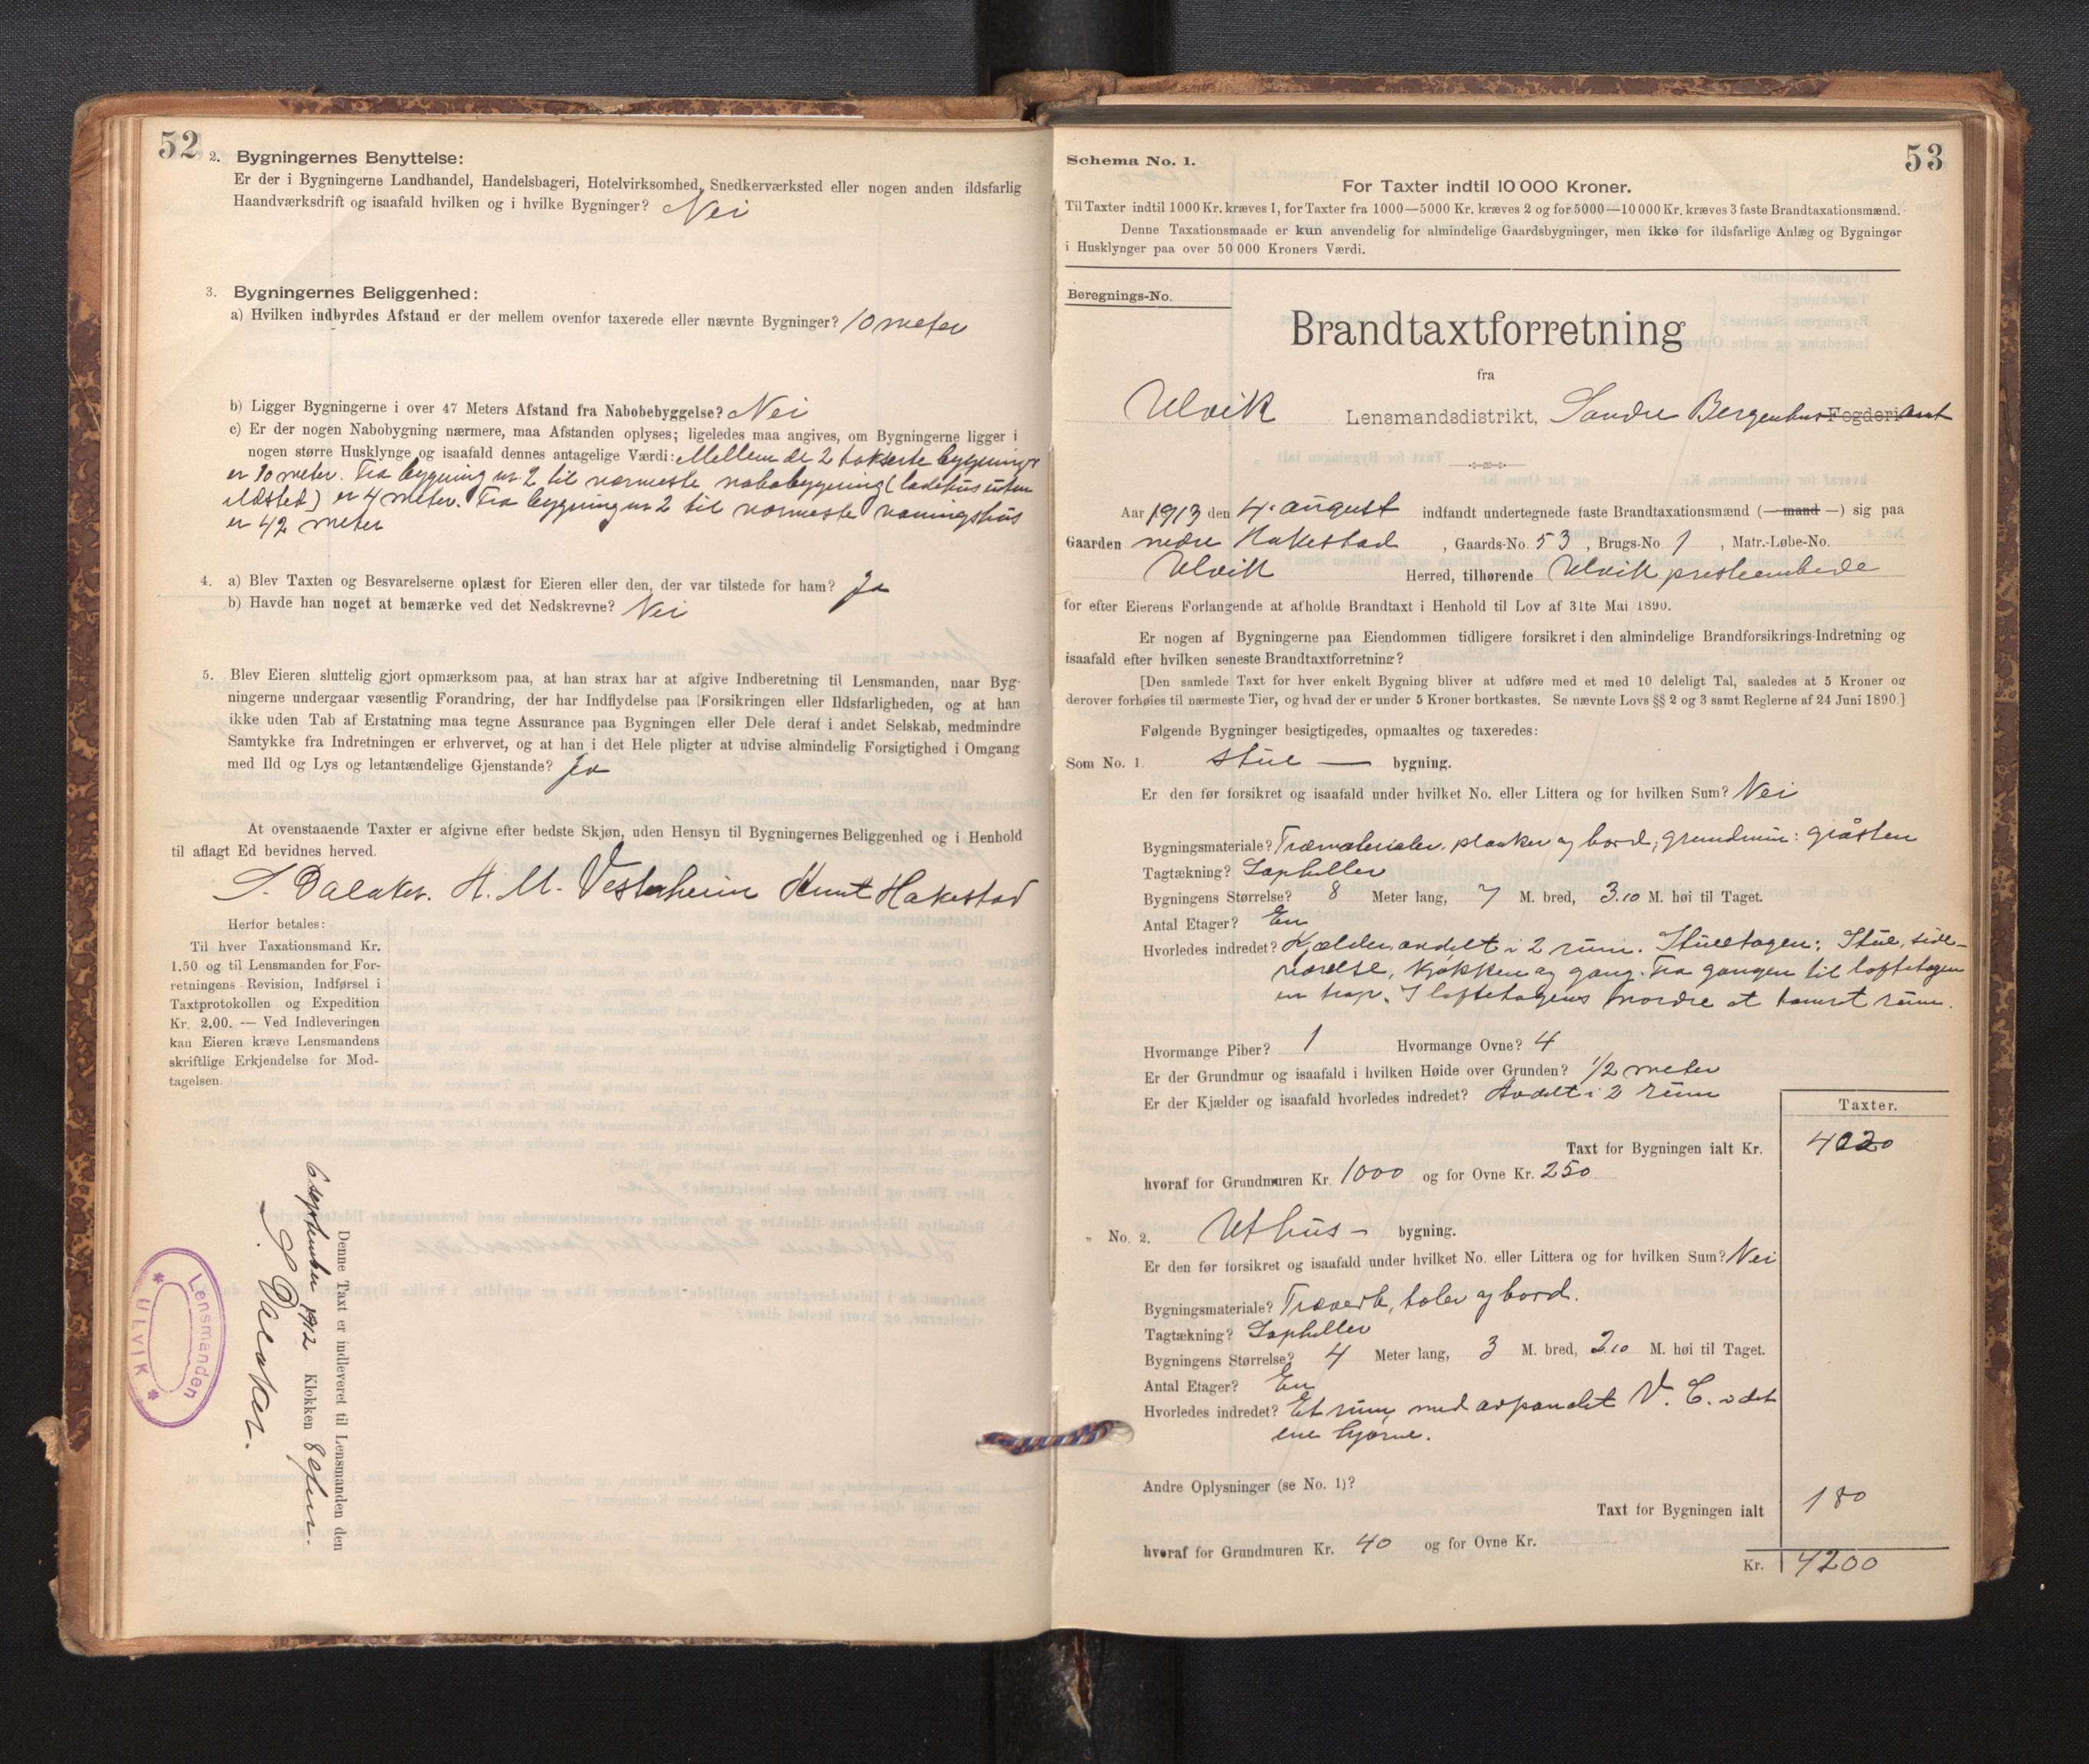 52
2. Bygningernes Benyttelse:
Er der i Bygningerne Landhandel, Handelsbageri, Hotelvirksomhed, Snedkerværksted eller nogen anden ildsfarlig
Haandværksdrift og isaafald hvilken og i hvilke Bygninger? Nei
3. Bygningernes Beliggenhed:
a) Hvilken indbyrdes Afstand er der mellem ovenfor taxerede eller nævnte Bygninger? 10 meter
b) Ligger Bygningerne i over 47 Meters Afstand fra Nabobebyggelse? Nei
c) Er der nogen Nabobygning nærmere, maa Afstanden oplyses; ligeledes maa angives, om Bygningerne ligger i
nogen større Husklynge og isaafald dennes antagelige Værdi: Mellem de 2 takserte bygninger
er 10 meter. Fra bygning nr 2 til nærmeste nabobygning (ladehus uten
ildsted) er 4 meter. Fra bygning nr 2 til nærmeste vaaningshus
er 42 meter
4. a) Blev Taxten og Besvarelserne oplæst for Eieren eller den, der var tilstede for ham? Ja
b) Havde han noget at bemærke ved det Nedskrevne? Nei
5. Blev Eieren sluttelig gjort opmærksom paa, at han strax har at afgive Indberetning til Lensmanden, naar Byg-
ningerne undergaar væsentlig Forandring, der har Indflydelse paa Forsikringen eller Ildsfarligheden, og at han
ikke uden Tab af Erstatning maa tegne Assurance paa Bygningen eller Dele deraf i andet Selskab, medmindre
Samtykke fra Indretningen er erhvervet, og at han i det Hele pligter at udvise almindelig Forsigtighed i Omgang
med Ild og Lys og letantændelige Gjenstande? Ja
At ovenstaaende Taxter er afgivne efter bedste Skjøn, uden Hensyn til Bygningernes Beliggenhed og i Henhold
til aflagt Ed bevidnes herved.
S. Dalaker. H. M. Vestrheim Knut Hakestad
Herfor betales:
Til hver Taxationsmand Kr.
1.50 og til Lensmanden for For-
retningens Revision, Indførsel i
Taxtprotokollen og Expedition
Kr. 2.00. — Ved Indleveringen
kan Eieren kræve Lensmandens
skriftlige Erkjendelse for Mod-
tagelsen.
Denne Taxt er indleveret til Lensmanden den
6 september 1912 Klokken 8 efterm.
S Dalaker.
Lensmanden
* ULVIK *
53
Schema No. 1.
For Taxter indtil 10 000 Kroner.
Til Taxter indtil 1000 Kr. kræves 1, for Taxter fra 1000—5000 Kr. kræves 2 og for 5000—10 000 Kr. kræves 3 faste Brandtaxationsmænd.
Denne Taxationsmaade er kun anvendelig for almindelige Gaardsbygninger, men ikke for ildsfarlige Anlæg og Bygninger
i Husklynger paa over 50 000 Kroners Værdi.
Beregnings-No.
Brandtaxtforretning
fra
Ulvik Lensmandsdistrikt, Søndre Bergenhus Fogderi amt
Aar 1913 den 4. august indfandt undertegnede faste Brandtaxationsmænd (— mand —) sig paa
Gaarden nedre Hakestad, Gaards-No. 53, Brugs-No. 1, Matr.-Løbe-No.
Ulvik Herred, tilhørende Ulvik prestembede
for efter Eierens Forlangende at afholde Brandtaxt i Henhold til Lov af 31te Mai 1890.
Er nogen af Bygningerne paa Eiendommen tidligere forsikret i den almindelige Brandforsikrings-Indretning og
isaafald efter hvilken seneste Brandtaxtforretning?
[Den samlede Taxt for hver enkelt Bygning bliver at udføre med et med 10 deleligt Tal, saaledes at 5 Kroner og
derover forhøies til nærmeste Tier, og hvad der er under 5 Kroner bortkastes. Se nævnte Lovs §§ 2 og 3 samt Reglerne af 24 Juni 1890.]
Følgende Bygninger besigtigedes, opmaaltes og taxeredes:
Som No. 1. stue — bygning.
Er den før forsikret og isaafald under hvilket No. eller Littera og for hvilken Sum? Nei
Bygningsmateriale? Træmaterialer, planker og bord, grundmur: gråsten
Tagtækning? Tapheller
Bygningens Størrelse? 8 Meter lang, 7 M. bred, 3.10 M. høi til Taget.
Antal Etager? En
Hvorledes indredet? Kjælder avdelt i 2 rum. Stueetagen: Stue, side-
værelse, kjøkken og gang. Fra gangen til loftetagen
en trap. I loftetagens nordre et tømret rum.
Hvormange Piber? 1 Hvormange Ovne? 4
Er der Grundmur og isaafald i hvilken Høide over Grunden? 1/2 meter
Er der Kjælder og isaafald hvorledes indredet? Avdelt i 2 rum
Taxter.
Taxt for Bygningen ialt Kr. 4020
hvoraf for Grundmuren Kr. 1000 og for Ovne Kr. 250
" No. 2. Uthus — bygning.
Er den før forsikret og isaafald under hvilket No. eller Littera og for hvilken Sum? Nei
Bygningsmateriale? Træverk, toler og bord.
Tagtækning? Tapheller
Bygningens Størrelse? 4 Meter lang, 3 M. bred, 2.10 M. høi til Taget.
Antal Etager? En
Hvorledes indredet? Et rum med avpanelet V. C. i det
ene hjørne.
Andre Oplysninger (se No. 1)?
Taxt for Bygningen ialt 180
hvoraf for Grundmuren Kr. 40 og for Ovne Kr.
Kr. 4200